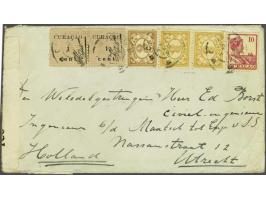 CURAÇAO CURAÇAO
1 1½
cent. cent.
10
CURAÇAO
Den Weledelgestrengen Heer Ed Borst
Civiel-ingenieur
Ingenieur b/d Maatsch tot Expl v S S
Nassaustraat 12
Holland Utrecht